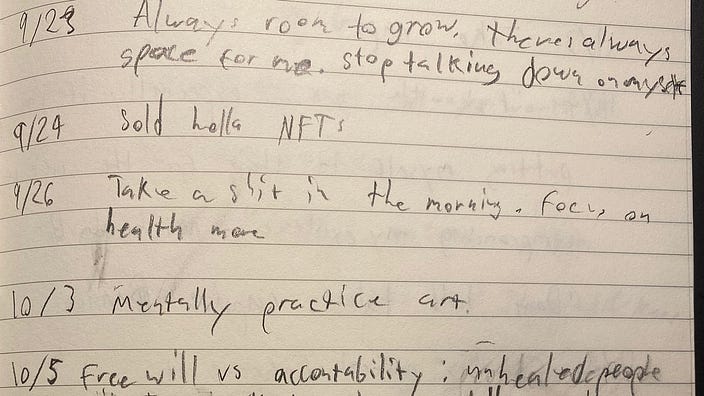 9/23 Always room to grow. theres always
space for me. stop talking down on myself
9/24 Sold hella NFTs
9/26 Take a shit in the morning. Focus on
health more
10/3 Mentally practice art.
10/5 Free will vs accontability : unhealed people